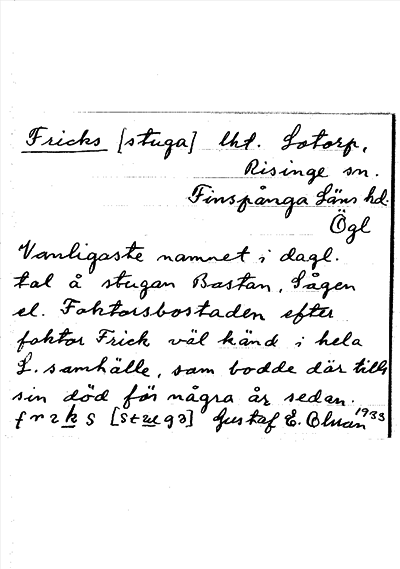 Fricks [stuga] lht. Lotorp,
Risinge sn.
Finspånga Läns hd.
Ögl
Vanligaste namnet i dagl.
tal å stugan Bastan, Sågen
el. Faktorsbostaden efter
faktor Frick väl känd i hela
L. samhälle, som bodde där tills
sin död för några år sedan.
frɪks [stʉgə] Gustaf E. Olsson 1933